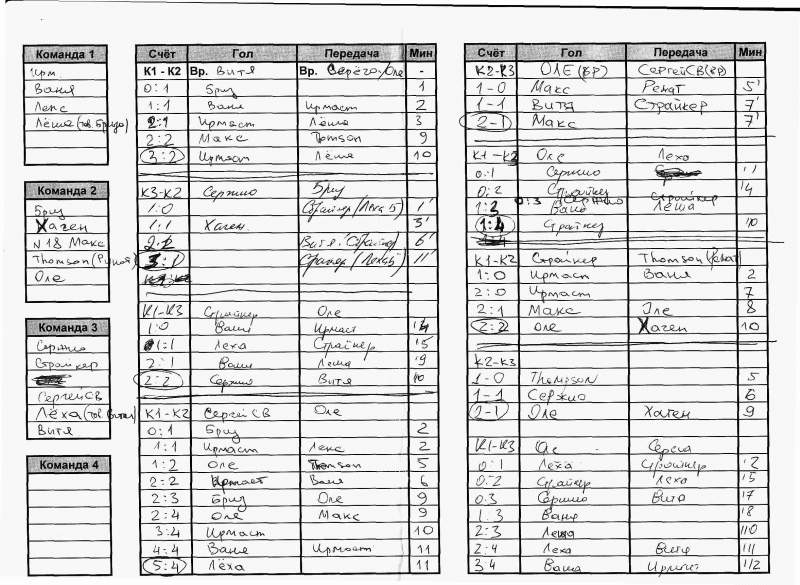 Команда 1
Ирм
Ваня
Лекс
Лёша (тов. Бризо)
Команда 2
Бриз
Хаген
N 18 Макс
Thomson
Оле
Команда 3
Сержио
Страйкер
СергейСВ
Лёха (тов. Вити)
Витя
Команда 4
Счёт Гол Передача Мин
К1 - К2 Вр. Витя Вр. Серёга/Оле -
0:1 Бриз 1
1:1 Ваня Ирмаст 2
2:1 Ирмаст Лёша 3
2:2 Макс Thomson 9
3:2 Ирмаст Лёша 10
К3-К2 Сержио Бриз
1:0 1'
1:1 Хаген 5'
6'
3:1 11'
К1-К3 Страйкер Оле
1:0 Ваня Ирмаст
1:1 Леха Страйкер '5
2:1 Ваня Леша '9
2:2 Сержио Витя 10
К1-К2 СергейСВ Оле
0:1 Бриз 2
1:1 Ирмаст Лекс 2
1:2 Оле Thomson 5
2:2 Ирмаст Ваня 6
2:3 Бриз Оле 9
2:4 Оле Макс 9
3:4 Ирмаст 10
4:4 Ваня Ирмаст 11
5:4 Лёха 11
Счёт Гол Передача Мин
К2-К3 ОЛЕ (вр) СергейСВ (вр)
1-0 Макс Ренат 5'
1-1 Витя Страйкер 7'
2-1 Макс 7'
Оле Леха
0:1 Сержио
0:2 Страйкер '4
0:3 Сержио Страйкер
Ваня Леша
1:4 Страйкер '10
К1-К2 Страйкер Thomson (Ренат)
1:0 Ирмаст Ваня 2
2:0 Ирмаст 7
2:1 Макс Оле 8
2:2 Оле Хаген 10
К2-К3
1-0 Thompson 5
1-1 Сержио 6
2-1 Оле Хаген 9
К1-К3 Серега
0:1 Леха Страйкер '2
0:2 Страйкер Леха '5
0:3 Сержио Витя '7
1:3 Ваня '8
2:3 Леша '10
2:4 Леха Витя '11
3:4 Ваня Ирмаст '12